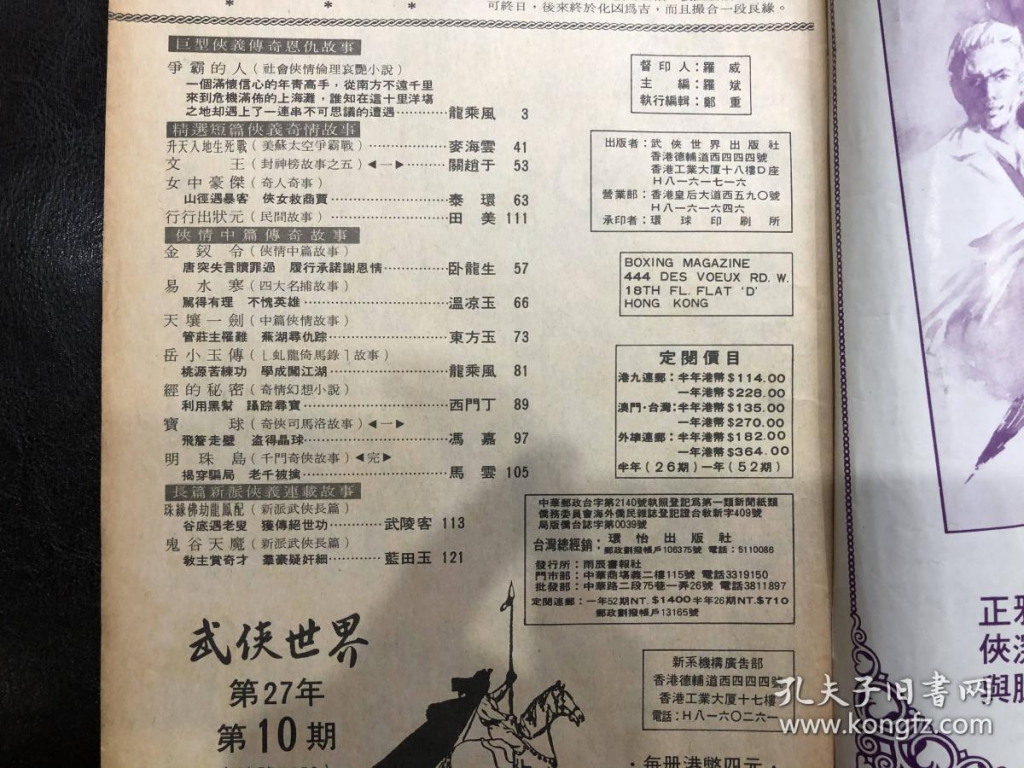 可終日，後來終於化凶爲吉，而且撮合一段良緣。
* * *
巨型俠義傳奇恩仇故事
爭霸的人（社會俠情倫理哀艷小說）
一個滿懷信心的年青高手，從南方不遠千里
來到危機滿佈的上海灘，誰知在這十里洋塲
之地却遇上了一連串不可思議的遭遇…………龍乘風 3
精選短篇俠義奇情故事
升天入地生死戰（美蘇太空爭霸戰）…………麥海雲 41
文王（封神榜故事之五）◀一▶…………關趙于 53
女中豪傑（奇人奇事）
山徑遇暴客 俠女救商賈…………泰環 63
行行出狀元（民間故事）…………田美 111
俠情中篇傳奇故事
金釵令（俠情中篇故事）
唐突失言贖罪過 履行承諾謝恩情…………卧龍生 57
易水寒（四大名捕故事）
罵得有理 不愧英雄…………溫凉玉 66
天壤一劍（中篇俠情故事）
管莊主罹難 蕪湖尋仇踪…………東方玉 73
岳小玉傳（「虬龍倚馬錄」故事）
桃源苦練功 學成闖江湖…………龍乘風 81
經的秘密（奇情幻想小說）
利用黑幫 躡踪尋寶…………西門丁 89
寶球（奇俠司馬洛故事）◀一▶
飛簷走壁 盜得晶球…………馮嘉 97
明珠島（千門奇俠故事）◀完▶
揭穿騙局 老千被擒…………馬雲 105
長篇新派俠義連載故事
珠緣佛劫龍鳳配（新派武俠長篇）
谷底遇老叟 獲傳絕世功…………武陵客 113
鬼谷天魔（新派武俠長篇）
敎主賞奇才 羣豪疑奸細…………藍田玉 121
武侠世界
第27年
第10期
督印人：羅威
主編：羅斌
執行編輯：鄭重
出版者：武俠世界出版社
香港德輔道西四四四號
香港工業大厦十八樓D座
H八一六一七一六
營業部：香港皇后大道西五九〇號
H八一六一六四六
承印者：環球印刷所
BOXING MAGAZINE
444 DES VOEUX RD. W.
18TH FL. FLAT 'D'
HONG KONG
定閱價目
港九連郵：半年港幣$114.00
一年港幣$228.00
澳門·台灣：半年港幣$135.00
一年港幣$270.00
外埠連郵：半年港幣$182.00
一年港幣$364.00
半年（26期）一年（52期）
中華郵政台字第2140號執照登記爲第一類新聞紙類
僑務委員會海外僑民雜誌登記證台敎新字409號
局版僑台誌字第0039號
台灣總經銷：環怡出版社
郵政劃撥帳戶106375號 電話：5110086
發行所：雨辰書報社
門市部：中華商塲義二樓115號 電話3319150
批發部：中華路二段75巷一弄26號 電話3811897
定閱連郵：一年52期NT.$1400半年26期NT.$710
郵政劃撥帳戶13165號
新系機構廣告部
香港德輔道西四四四號
香港工業大厦十七樓
電話：H八一六〇二六一
·每册港幣四元·
正
俠
與
孔夫子旧書网
www.kongfz.com